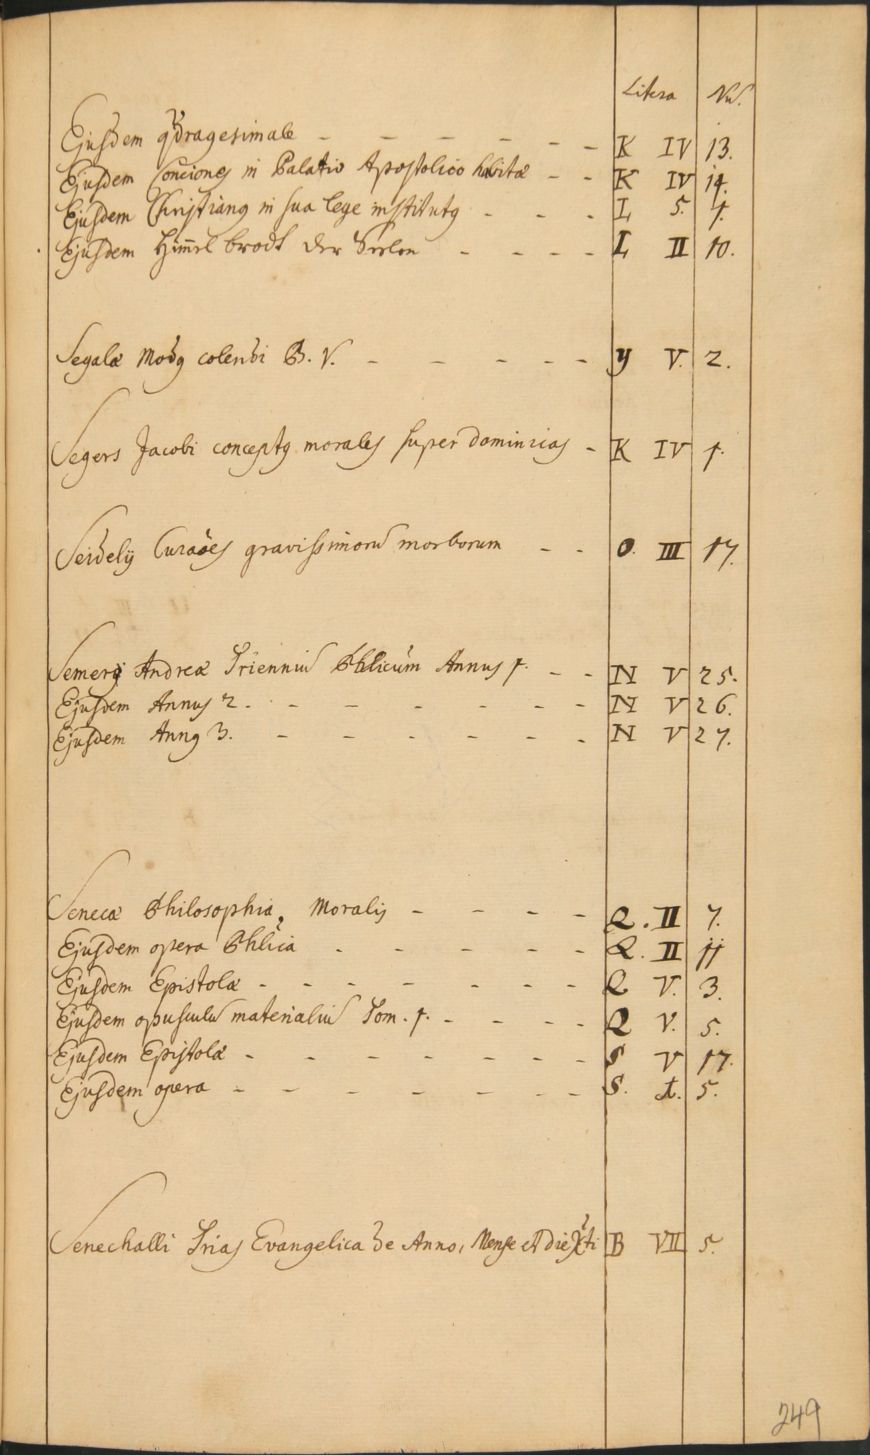 Litera Nu.
Ejusdem qdragesimale – – – – – – K IV 13.
Ejusdem Conciones in Palatio Apostolico habitæ – – K IV 14.
Ejusdem Christiang in sua lege institutg – – – L 5. 1.
Ejusdem Him̄el brodt der Seelen – – – – L II 10.
Segalæ Modg colendi B. V. – – – – – y V. 2.
Segers Jacobi conceptg morales super dominicas – K IV 1.
Seidelij Curaōes gravissimorū morborum – – O. III 17.
Semerÿ Andreæ Trienniū Phlicum Annus 1. – – N V 25.
Ejusdem Annus 2. – – – – – – N V 26.
Ejusdem Anng 3. – – – – – – N V 27.
Senecæ Philosophia, Moralis – – – – Q. II 7.
Ejusdem opera Phlica – – – – – Q. II 11
Ejusdem Epistolæ – – – – – – – Q V. 3.
Ejusdem opusculū materialiū Tom. 1. – – – – Q V. 5.
Ejusdem Epistolæ – – – – – – S V 17.
Ejusdem opera – – – – – – – S. 5.
Senechalli Trias Evangelica de Anno, Mense et die Xti B VII 5.
249